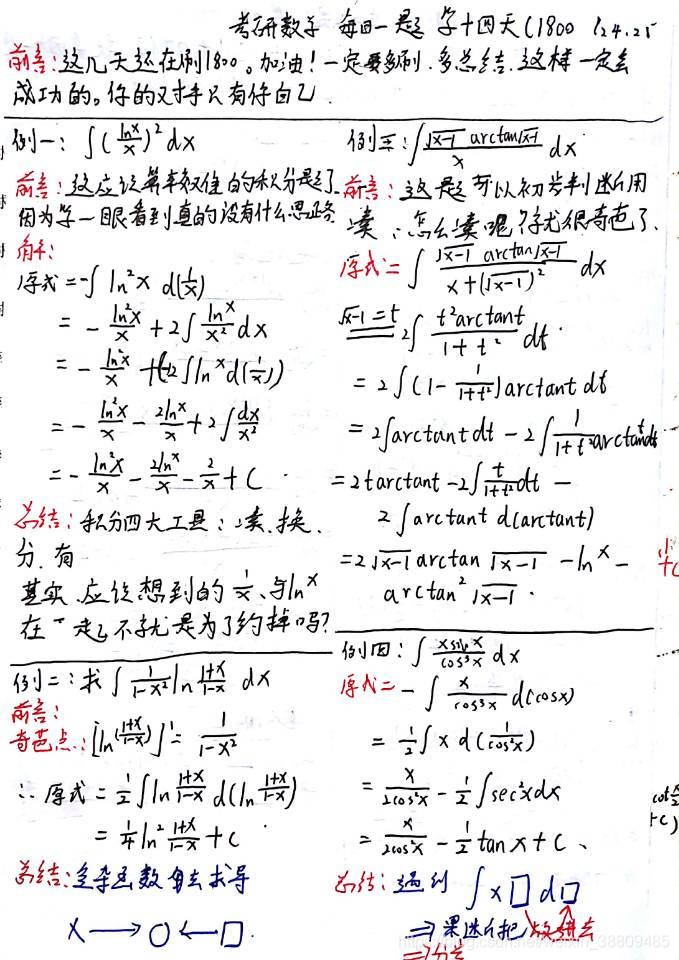 考研数学 每日一题 第十四天(1800 P24.25
前言:这几天还在刷1800。加油!一定要多刷.多总结.这样一定会
成功的。你的对手只有你自己.
例一: ∫(lnx/x)² dx
前言:这应该算率较佳的积分题了.
因为第一眼看到真的没有什么思路
解:
原式=-∫ ln²x d(1/x)
= - ln²x/x + 2∫ lnx/x² dx
= - ln²x/x + (-2∫lnx d(1/x))
= - ln²x/x - 2lnx/x + 2∫ dx/x²
= - ln²x/x - 2lnx/x - 2/x + C
总结:积分四大工具:凑.换.
分.有
其实.应该想到的 1/x.与lnx
在一起,不就是为了约掉吗?
例二:求 ∫ 1/(1-x²) ln (1+x)/(1-x) dx
前言:
奇葩点:[ln((1+x)/(1-x))]' = 1/(1-x²)
∴ 原式 = 1/2 ∫ln (1+x)/(1-x) d(ln (1+x)/(1-x))
= 1/4 ln² (1+x)/(1-x) + C
总结:复杂函数自去求导
X → ○ ← □.
例三:∫ √(x-1) arctan√(x-1) / x dx
前言:这题可以初步判断用
凑:怎么凑呢?就很奇葩了.
原式= ∫ √(x-1) arctan√(x-1) / (x+(√(x-1))²) dx
√(x-1) = t 2∫ t²arctant/(1+t²) dt
= 2∫(1- 1/(1+t²))arctant dt
= 2∫arctant dt - 2∫ 1/(1+t²) arctant dt
= 2tarctant - 2∫ t/(1+t²) dt -
2∫arctant d(arctant)
=2√(x-1) arctan √(x-1) - lnx -
arctan² √(x-1) .
+C
例四:∫ xsinx/cos³x dx
原式= -∫ x/cos³x d(cosx)
= 1/2 ∫ x d(1/cos²x)
= x/2cos²x - 1/2 ∫sec²xdx
= x/2cos²x - 1/2 tanx + C、
总结:遇到 ∫ x□ d□
⇒ 果断把 放进去
⇒分部